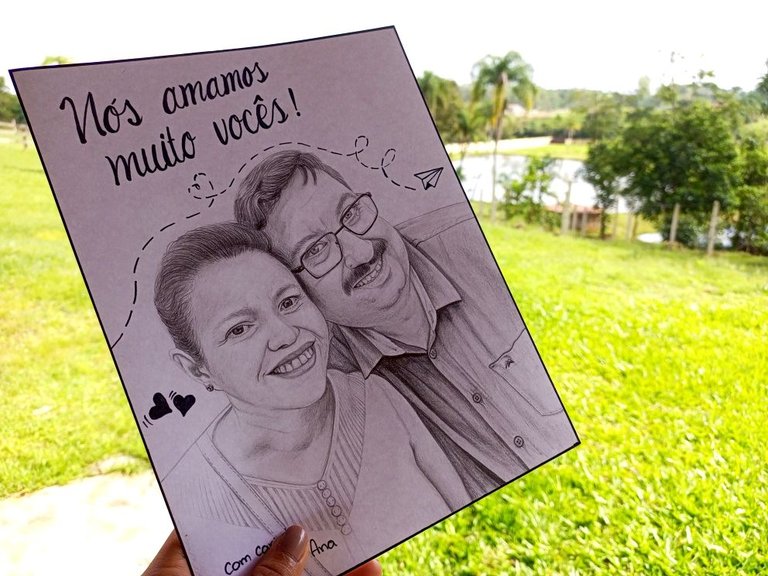 Nós amamos
muito vocês!
com Ana